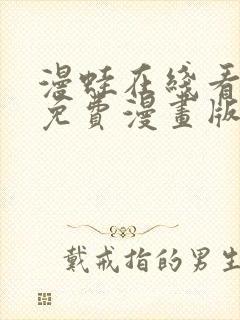 漫蛙在綫看
免費漫畫版
戴戒指的男生